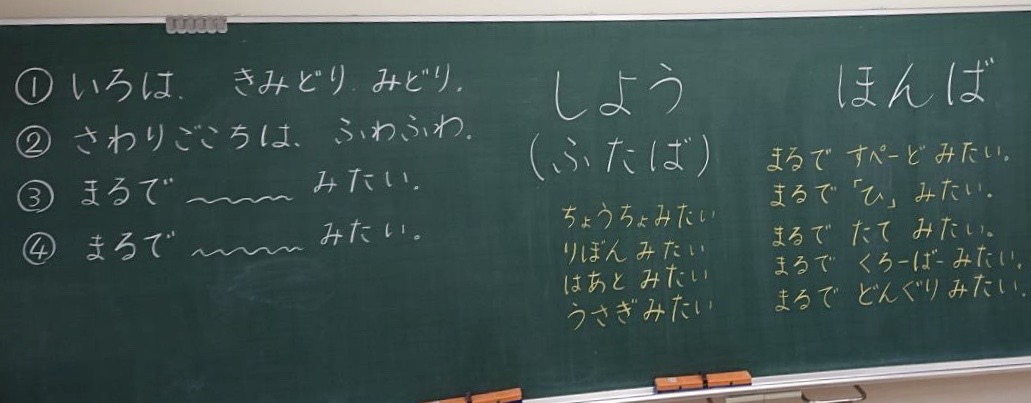 ① いろは、 きみどり、みどり。
② さわりごこちは、 ふわふわ。
③ まるで 〰〰 みたい。
④ まるで 〰〰 みたい。
しよう
(ふたば)
ちょうちょみたい
りぼん みたい
はあと みたい
うさぎみたい
ほんば
まるで すぺーど みたい。
まるで 「ひ」 みたい。
まるで たて みたい。
まるで くろーばー みたい。
まるで どんぐり みたい。